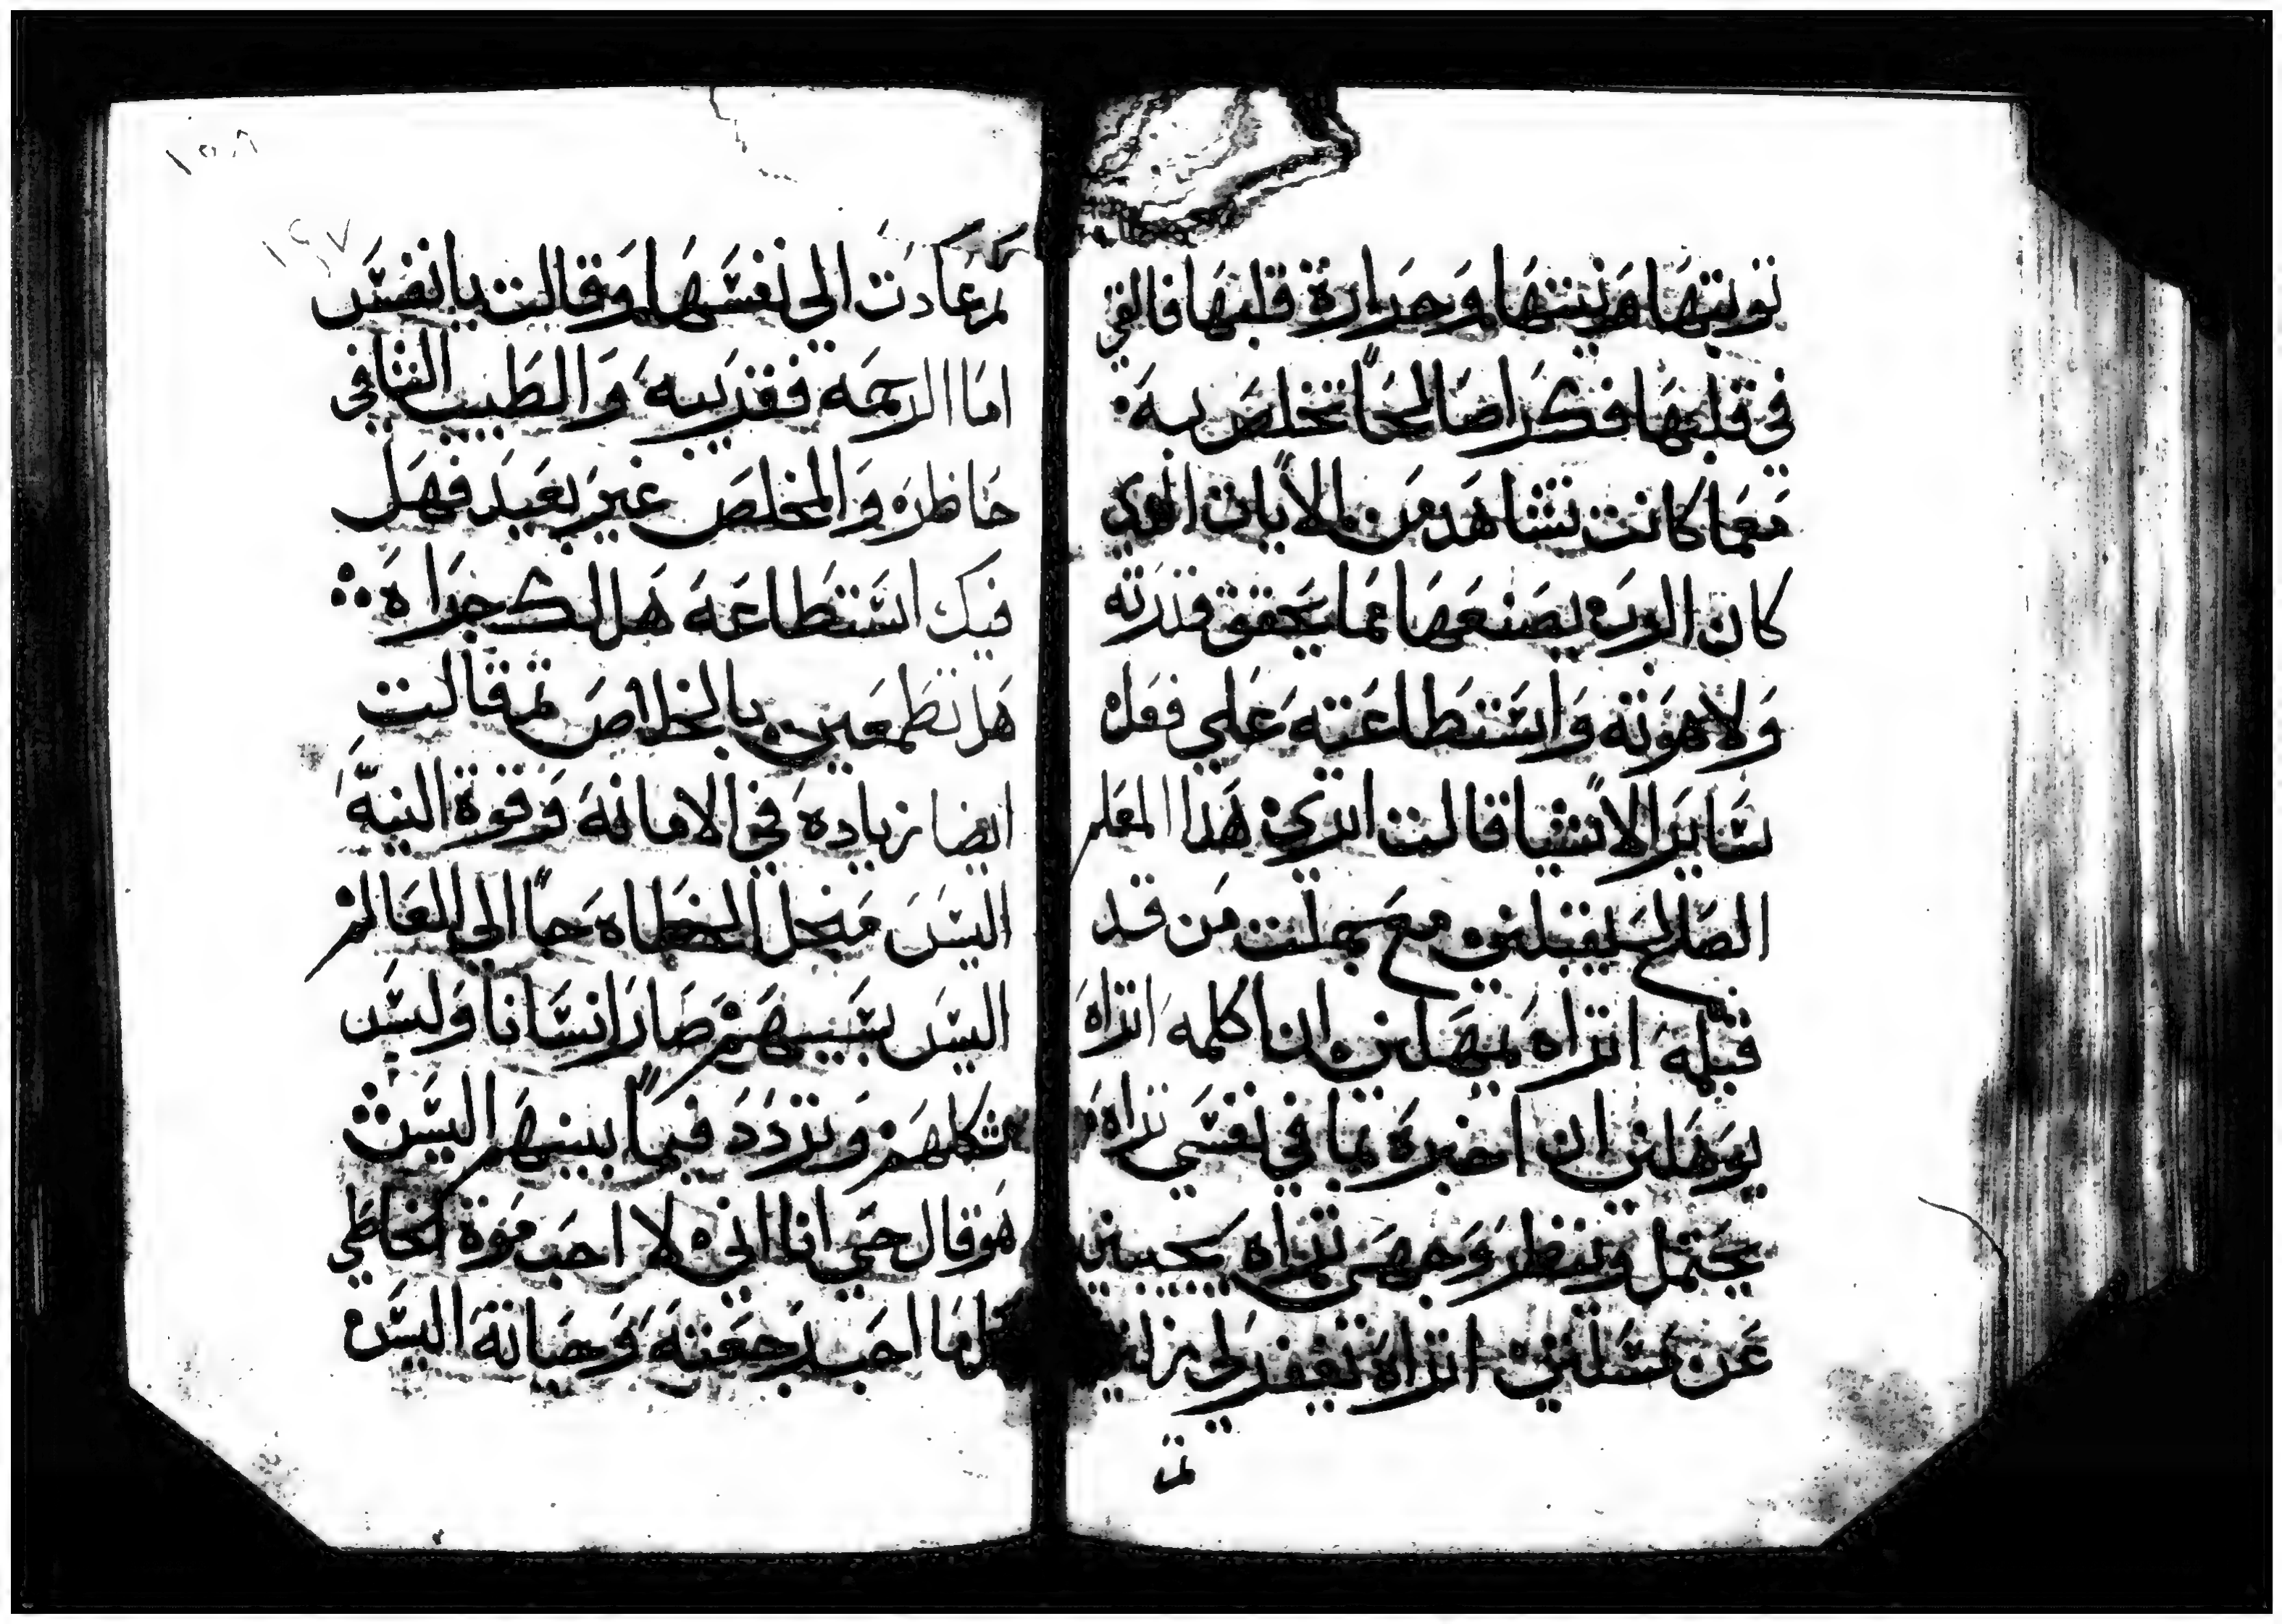 توبتها ونيتها وحرارة قلبها فالقي
في قلبها فكرا صالحا تخلص به
معما كانت تشاهد من الايات الذي
كان الرب يصنعها مما يحقق قدرته
ولاهوته واستطاعته علي فعل
ساير الاشيا قالت اتري هذا المعلم
الصالح يقبلني مع جملت من قد
قبله اتراه يمهلني ان اكلمه اتراه
يوهلني ان اخبره بما في نفسي تراه
يحتمل وينظر وجهي تراه يجيبني
عن مسلتي اتراه يغفر لي زلتي
تم
تم عادت الي نفسها وقالت يا نفس
اما الرحمه فقريبه والطبيب الشافي
حاظره والمخلص غير بعيد فهل
فيك استطاعه هل لك جراه
هل تطمعين بالخلاص تم قالت
ايضا زياده في الامانه وقوة النيه
اليس من اجل الخطاه جا الي العالم
اليس بسببهم صار انسانا وليس
شكلهم وتردد فيما بينهم اليس
هو قال حي انا اني لا احب موة الخاطي
كما احب رجعته وحياته اليس
١٥٨
١٤٧